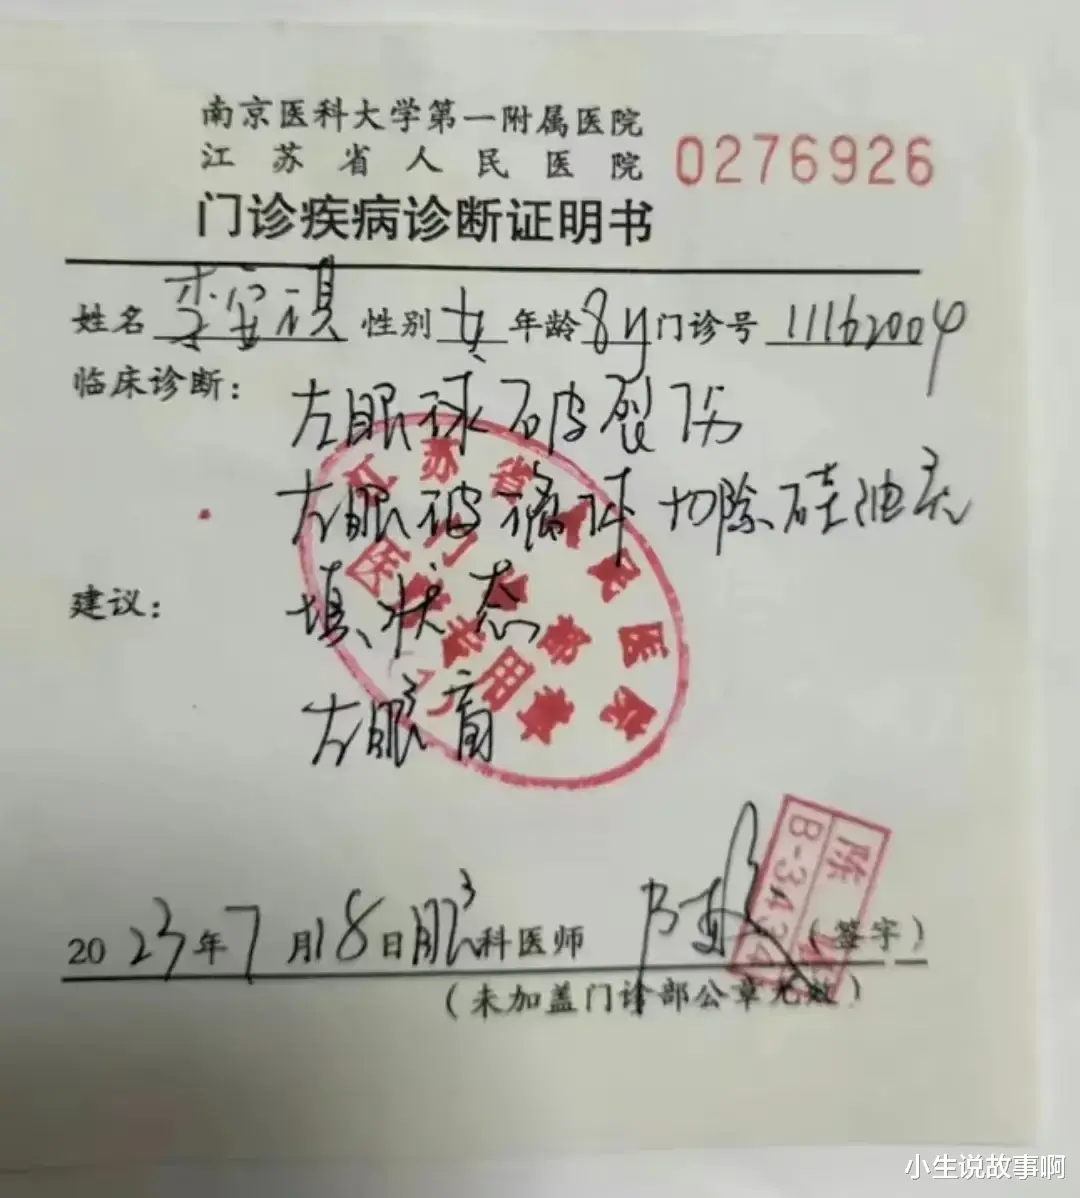 南京医科大学第一附属医院
江苏省人民医院 0276926
门诊疾病诊断证明书
姓名 李安 性别 女 年龄 8y 门诊号 11162004
临床诊断：
左眼球破裂伤
左眼玻璃体切除硅油充
建议： 填状态
左眼盲
江苏省人民医院
门诊部
医疗专用章
2023年7月18日眼科医师 陈 （签字）
陈
B-3434
（未加盖门诊部公章无效）
小生说故事啊